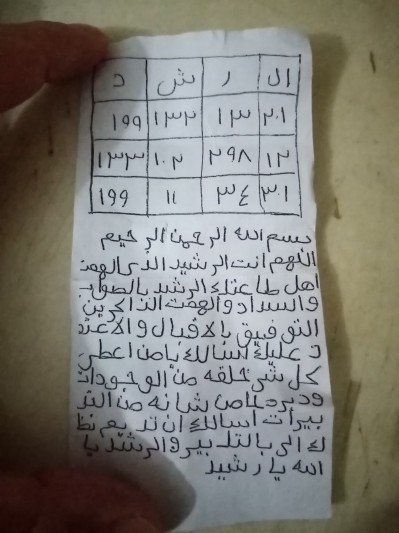 ال ر ش د
٢٠١ ١٣ ١٣٢ ١٩٩
١٢ ٢٩٨ ٢٠٢ ١٣٣
٣٠١ ٣٤ ١١ ١٩٩
بسم الله الرحمن الرحيم
اللهم انت الرشيد الذي الهمت
اهل طاعتك الرشد بالصواب
والسداد والهمت الذاكرين
التوفيق بالاقبال والاعتما
د عليك اسالك يامن اعطى
كل شي خلقه من الوجودات
ودبره من شانه من التد
بيرات اسالك ان تديم نظ
ك الي بالتدبير والرشد يا
الله يا رشيد